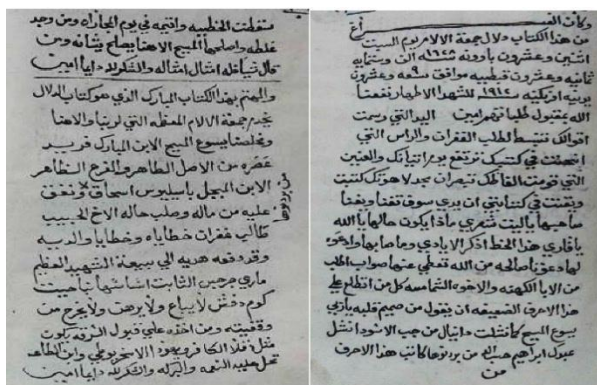 وكان الفـ اغ
من هذا الكتاب دلال جمعة الالام يوم السبت
اثنين وعشرون باوونه سنة ١٦٢٨ الف وستمايه
ثمانيه وعشرون قبطيه موافق تسعه وعشرون
يونيه افرنكيه ١٩١٢ للشهدا الاطهار نفعنا
الله بمقبول طلباتهم امين اليد التي رسمت
اقوالك تنبسط لطلب الغفران والراس التي
انحنت في كتبك ترتفع يوم اتيانك والعينين
التي قومت الفاظك تبصران مجد لاهوتك كتبت
ويقنت في كتابتي ان يدي سوف تفنا ويبقا
ماهيها ياليت شعري ماذا يكون حالها يا الله
يا قاري هذا الخط اذكر الايادي وما صابها وادعو
لها دعوة صالحه من الله تعطي عنها صواب الطلب
من الابا الكهنه والاخوه الشمامسه كل من اطلع علي
هذا الاحرف الضعيفه ان يقول من صميم قلبه يا ربي
يسوع المسيح كما نشلت دانيال من جب الاسود انشل
عبدك ابراهيم من بردنوها كاتب هذا الاحرف
من
سقطت الخطيه واقيمه في يوم المجازاه ومن وجد
غلطه واصلحها المسيح الاهنا يصلح شانه ومن
قال شيا فله امثال امثاله والشكر لله دايما امين
والمهتم بهذا الكتاب المبارك الذي هو كتاب دلال
يخدم جمعة الالام المعظمه التي لربنا والاهنا
ومخلصنا يسوع المسيح الابن المبارك فريد
عصره من الاصل الطاهر والفرع الظاهر
الابن المبجل باسيليوس اسحاق ونفق
من بردنوها
عليه من ماله وصلب حاله الاخ الحبيب
طالب غفران خطاياه وخطايا والديه
وقد دفعه هديه الي بيعة الشهيد العظيم
ماري جرجس الثابت اساسها بناحية
كوم دفش لا يباع ولا يرهن ولا يخرج من
وقفيته ومن اخذه علي قبول السرقه يكون
مثل دقلا الكافر ويهودا الاسخريوطي وابن الطاعه
تحل عليه النعمه والبركه والشكر لله دايما امين